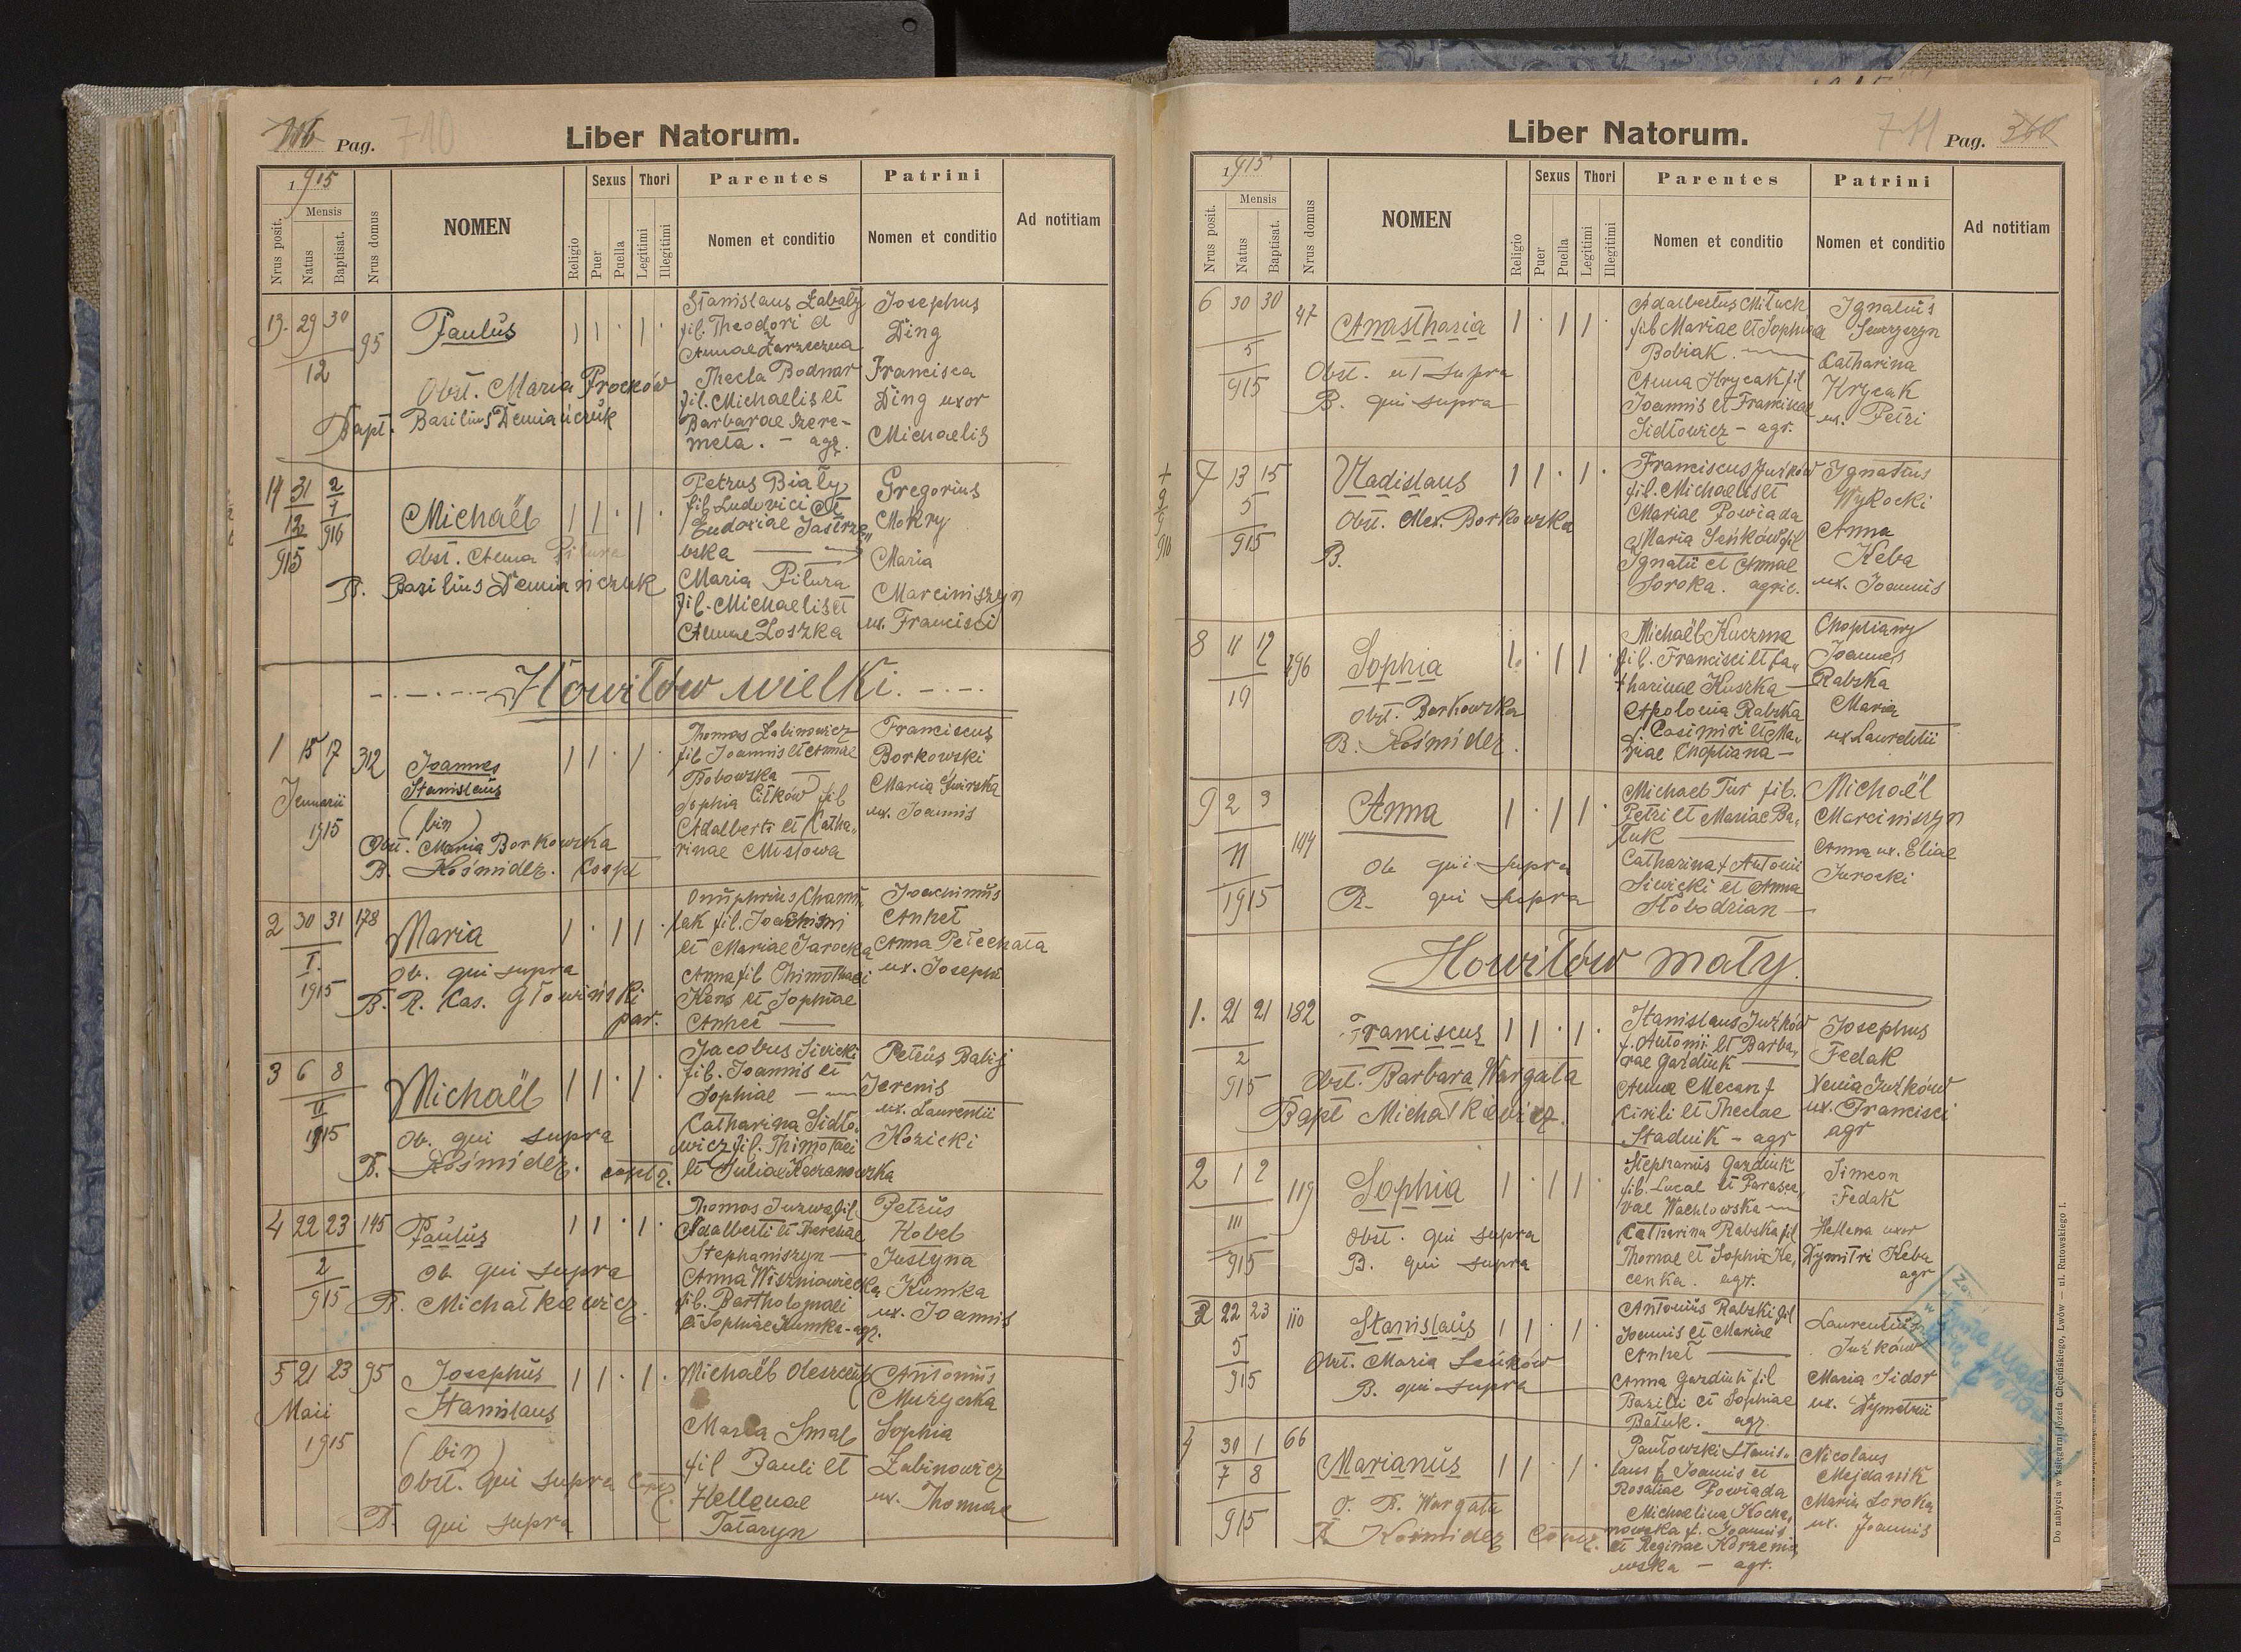 Pag. 710
Liber Natorum.
1915
Nrus posit.
Mensis
Natus
Baptisat.
Nrus domus
NOMEN
Religio
Sexus
Puer
Puella
Thori
Legitimi
Illegitimi
Parentes
Nomen et conditio
Patrini
Nomen et conditio
Ad notitiam
13. 29 30
12
95
Paulus
Obst. Maria Procków
Bapt. Basilius Demiańczuk
Stanislaus Zabały
fil. Theodori et
Annae Zarzeczna
Thecla Bodnar
fil. Michaelis et
Barbarae Szere-
meta. - agr.
Josephus
Ding
Francisca
Ding uxor
Michaelis
14 31 2
12 1
915 916
Michaël
Obst. Anna Pilura
B. Basilius Demiańczuk
Petrus Biały
fil. Ludovici et
Eudoxiae Jastrzę„
bska
Maria Pilura
fil. Michaelis et
Annae Loszka
Gregorius
Mokry
Maria
Marciniszyn
ux. Francisci
Howiłów wielki.
1 15 17 312
Januarii
1915
Joannes
Stanislaus
(bin)
Obst. Maria Borkowska
B. Kośmider. Coop
Thomas Labinowicz
fil. Joannis et Annae
Bobowska
Sophia Citków fil
Adalberti et Catha„
rinae Mistowa
Franciscus
Borkowski
Maria
ux. Joannis
2 30 31 178
I.
1915
Maria
Ob. qui supra
B. R. Cas. Głowiński
par.
Onuphrius Cham„
lak fil. Joachimi
et Mariae Jarocka
Anna fil. Thimothaei
Kens et Sophiae
Anhel
Joachimus
Anhel
Anna Petechata
ux. Josephi
3 6 8
II
1915
Michaël
Ob. qui supra
B. Kośmider.
Jacobus Siwicki
fil. Joannis et
Sophiae
Catharina Sidło„
wicz fil. Thimotaei
et Juliae Kochanowska
Petrus Babij
Jerenis
ux. Laurentii
Kozicki
4 22 23 145
2
915
Paulus
Ob qui supra
B. Michałkiewicz.
Thomas Jurwa fil
Adalberti et Theresiae
Stephaniszyn
Anna Wiszniowiecka
fil. Bartholomaei
et Sophiae Kumka-agr.
Petrus
Kobel
Justyna
Kumka
ux. Joannis
5 21 23 95
Maii
1915
Josephus
Stanislaus
(bin)
Obst. qui supra
B. qui supra
Michaël Oleszczuk
Maria Smal
fil Pauli et
Hellenae
Tataryn
Antonius
Muzyczka
Sophia
Labinowicz
ux. Thomae
Liber Natorum.
711 Pag. 360
1915
Nrus posit.
Mensis
Natus
Baptisat.
Nrus domus
NOMEN
Religio
Sexus
Puer
Puella
Thori
Legitimi
Illegitimi
Parentes
Nomen et conditio
Patrini
Nomen et conditio
Ad notitiam
6 30 30 47
5
915
Anasthasia
Obst. ut supra
B. qui supra
Adalbertus Mituch
fil Mariae et Sophia
Bobiak.
Anna Hrycak fil
Joannis et Franciscae
Sidłowicz - agr.
Ignatius
Seweryn
Catharina
Krycak
ux. Petri
7 13 15
5
915
Vladislaus
Obst. Mar. Borkowska
B.
Franciscus Jurków
fil. Michaelis et
Mariae Powiada
Maria Seńków fil
Ignatii et Annae
Soroka. agric.
Ignatius
Wykocki
Anna
Keba
ux. Joannis
8 11 12 496
19
Sophia
Obst. Borkowska
B. Kośmider.
Michaël Kuczma
fil. Francisci et Ca„
tharinae Kuszka
Apolonia Rabska
Casimiri et Ma„
riae Chopliana
Chopliany
Joannes
Rabska
Maria
ux Laurentii
9 2 3 144
11
1915
Anna
Ob qui supra
B. qui supra
Michael Tur fil.
Petri et Mariae Ba„
luk
Catharina f Antonii
Siwicki et Anna
Słobodzian
Michaël
Marciniszyn
Anna ux. Eliae
Jurocki
Howiłów mały.
1. 21 21 182
2
915
Franciscus
Obst. Barbara Wargata
Bapt Michałkiewicz.
Stanislaus Jurków
f. Antonii et Barba„
rae Gazdiuk
Anna Mecan f
Cirili et Theclae
Stadnik - agr
Josephus
Fedak
Xenia Jurków
ux. Francisci
agr
2 1 2 119
III
915
Sophia
Obst. qui supra
B. qui supra
Stephanus Gazdiuk
fil. Lucae et Parasce„
vae Wachlowska
Catharina Rabska fil
Thomae et Sophia Ke„
cenka. agr.
Simeon
Fedak
Hellena uxor
Dymitri Keba
agr
3 22 23 110
5
915
Stanislaus
Obst. Maria Seńków
B. qui supra
Antonius Rabski fil
Joannis et Mariae
Anhel
Anna Gazdiuk fil
Basilii et Sophiae
Batuk. agr.
Laurentius
Jurków
Maria Sidor
ux. Dymetrii
4 30 1 66
7 8
915
Marianus
O. B. Wargata
B Kośmider
Pawłowski Stanis„
laus f. Joannis et
Rosaliae Powiada
Michaelina Kocha„
nowska f. Joannis
et Reginae Korzenio„
wska - agr.
Nicolaus
Mejdanik
Maria Soroka
ux. Joannis
Do nabycia w księgarni Józefa Chęcińskiego, Lwów — ul. Rutowskiego 1.